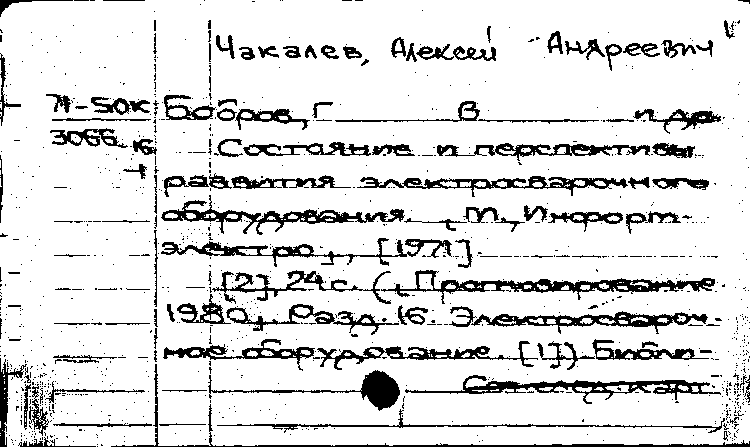 Чакалев, Алексей Андреевич
71-50К Бобров, Г В и др.
3066 16 Состояние и перспективы
развития электросварочного
оборудования. „ М., Информ-
электро„, [1971]
[2], 24 с. („Прогнозирование
1980„. Разд. 16. Электросвароч-
ное оборудование. [1]). Библи-
См. след. карт